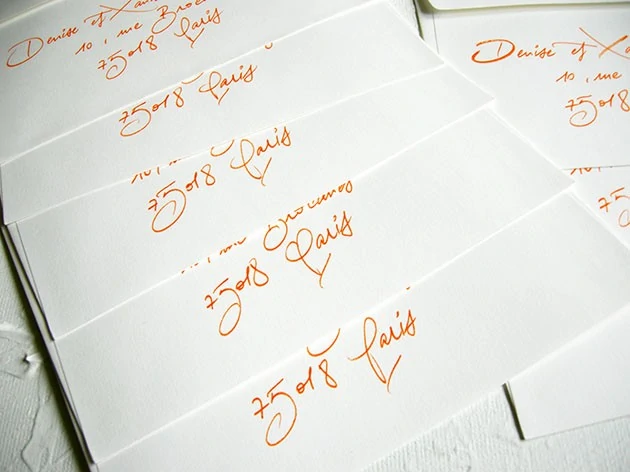 Denise et
10, rue
75018 Paris
75018 Paris
75018 Paris
rue
75018 Paris
75018 Paris
Denise et
10, rue
7501
75